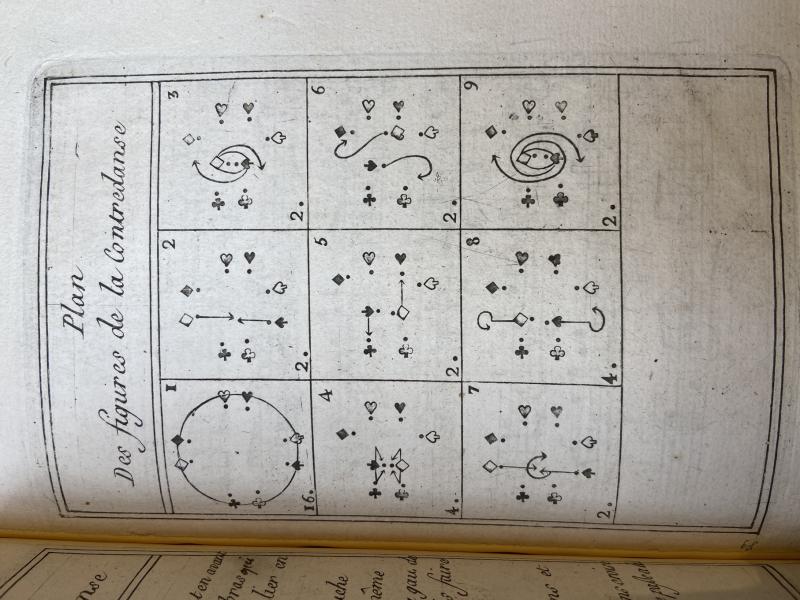 Plan
Des figures de la Contredanse
1
16.
2
2.
3
2.
4
4.
5
2.
6
2.
7
2.
8
4.
9
2.